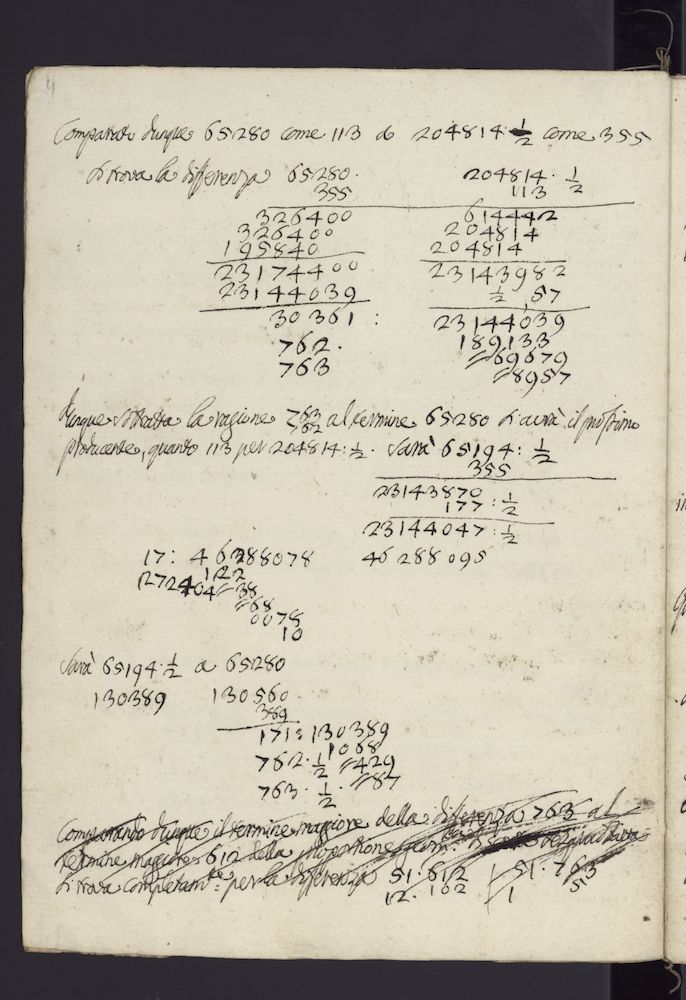 4
Comparato dunque 65280 come 113 a 204814 1/2 come 355
si trova la differenza 65280. 204814. 1/2
355 113
326400 614442
326400 204814
195840 204814
23174400 23143982
23144039 1/2 ,57
30361 : 23144039
762. 189133
763 =69679
=8957
Dunque sottratta la ragione 763/762 al termine 65280 si avrà il prossimo
producente, quanto 113 per 204814: 1/2. Sarà 65194: 1/2
355
23143870
177: 1/2
23144047: 1/2
17: 46288078 46288095
122
2724404=38
=68
0078
10
Sarà 65194. 1/2 a 65280
130389 130560
389
171: 130389
1068
762. 1/2 =429
763. 1/2. =87
Comparando dunque il termine magiore della differenza 763 al
termine magiore 612 della proportione
si trova completam.te per la differenza 51. 612 51. 763
12. 102 1 5